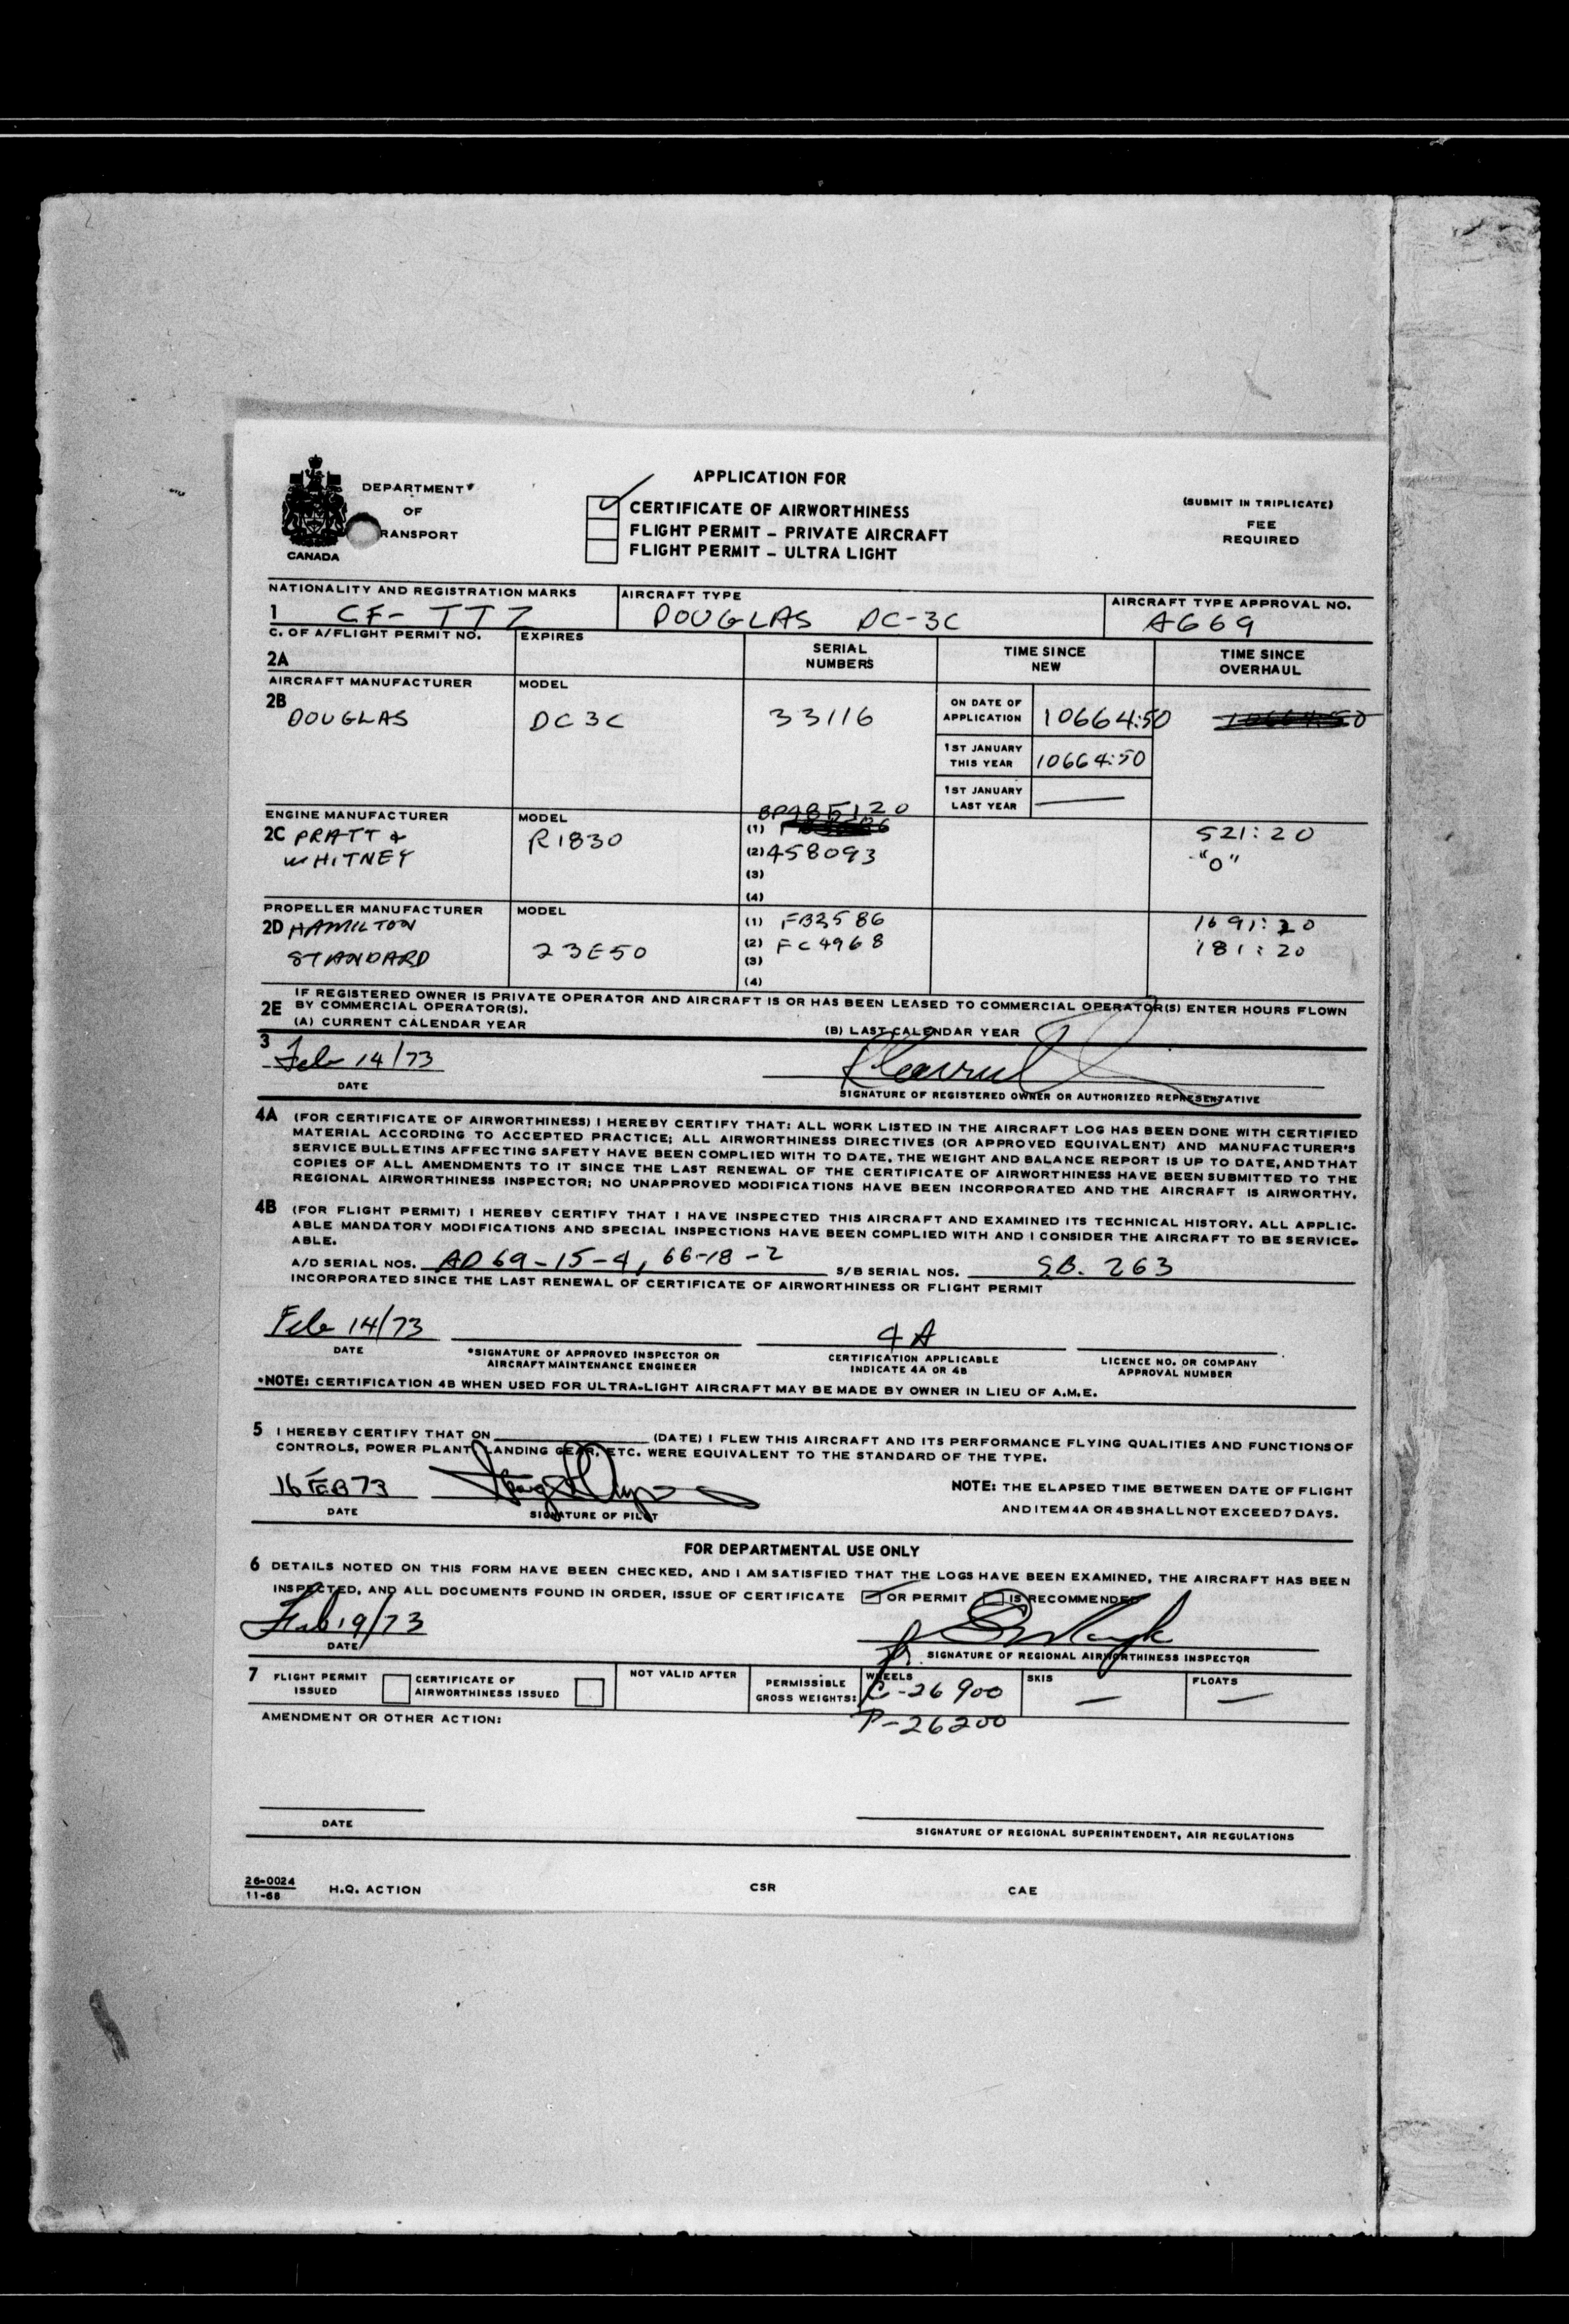 DEPARTMENT
OF
RANSPORT
CANADA
APPLICATION FOR
CERTIFICATE OF AIRWORTHINESS
FLIGHT PERMIT – PRIVATE AIRCRAFT
FLIGHT PERMIT – ULTRA LIGHT
(SUBMIT IN TRIPLICATE)
FEE
REQUIRED
NATIONALITY AND REGISTRATION MARKS
1 CF- TTZ
AIRCRAFT TYPE
DOUGLAS DC-3C
AIRCRAFT TYPE APPROVAL NO.
A669
C. OF A/FLIGHT PERMIT NO.
2A
EXPIRES
SERIAL
NUMBERS
TIME SINCE
NEW
TIME SINCE
OVERHAUL
AIRCRAFT MANUFACTURER
2B
DOUGLAS
MODEL
DC3C
33116
ON DATE OF
APPLICATION
10664:50
1ST JANUARY
THIS YEAR
10664:50
1ST JANUARY
LAST YEAR —
ENGINE MANUFACTURER
2C PRATT &
WHITNEY
MODEL
R1830
BP485120
(1)
(2) 458093
(3)
(4)
521:20
"0"
PROPELLER MANUFACTURER
2D HAMILTON
STANDARD
MODEL
23E50
(1) FB2586
(2) FC4968
(3)
(4)
1691:20
181:20
2E IF REGISTERED OWNER IS PRIVATE OPERATOR AND AIRCRAFT IS OR HAS BEEN LEASED TO COMMERCIAL OPERATOR(S) ENTER HOURS FLOWN
BY COMMERCIAL OPERATOR(S).
(A) CURRENT CALENDAR YEAR (B) LAST CALENDAR YEAR
3
Feb 14/73
DATE
SIGNATURE OF REGISTERED OWNER OR AUTHORIZED REPRESENTATIVE
4A (FOR CERTIFICATE OF AIRWORTHINESS) I HEREBY CERTIFY THAT: ALL WORK LISTED IN THE AIRCRAFT LOG HAS BEEN DONE WITH CERTIFIED
MATERIAL ACCORDING TO ACCEPTED PRACTICE; ALL AIRWORTHINESS DIRECTIVES (OR APPROVED EQUIVALENT) AND MANUFACTURER'S
SERVICE BULLETINS AFFECTING SAFETY HAVE BEEN COMPLIED WITH TO DATE. THE WEIGHT AND BALANCE REPORT IS UP TO DATE, AND THAT
COPIES OF ALL AMENDMENTS TO IT SINCE THE LAST RENEWAL OF THE CERTIFICATE OF AIRWORTHINESS HAVE BEEN SUBMITTED TO THE
REGIONAL AIRWORTHINESS INSPECTOR; NO UNAPPROVED MODIFICATIONS HAVE BEEN INCORPORATED AND THE AIRCRAFT IS AIRWORTHY.
4B (FOR FLIGHT PERMIT) I HEREBY CERTIFY THAT I HAVE INSPECTED THIS AIRCRAFT AND EXAMINED ITS TECHNICAL HISTORY. ALL APPLIC-
ABLE MANDATORY MODIFICATIONS AND SPECIAL INSPECTIONS HAVE BEEN COMPLIED WITH AND I CONSIDER THE AIRCRAFT TO BE SERVICE-
ABLE.
A/D SERIAL NOS. AD 69-15-4, 66-18-2 S/B SERIAL NOS. S.B. 263
INCORPORATED SINCE THE LAST RENEWAL OF CERTIFICATE OF AIRWORTHINESS OR FLIGHT PERMIT
Feb 14/73
DATE
*SIGNATURE OF APPROVED INSPECTOR OR
AIRCRAFT MAINTENANCE ENGINEER
4A
CERTIFICATION APPLICABLE
INDICATE 4A OR 4B
LICENCE NO. OR COMPANY
APPROVAL NUMBER
*NOTE: CERTIFICATION 4B WHEN USED FOR ULTRA-LIGHT AIRCRAFT MAY BE MADE BY OWNER IN LIEU OF A.M.E.
5 I HEREBY CERTIFY THAT ON (DATE) I FLEW THIS AIRCRAFT AND ITS PERFORMANCE FLYING QUALITIES AND FUNCTIONS OF
CONTROLS, POWER PLANT, LANDING GEAR, ETC. WERE EQUIVALENT TO THE STANDARD OF THE TYPE.
16 FEB 73
DATE
SIGNATURE OF PILOT
NOTE: THE ELAPSED TIME BETWEEN DATE OF FLIGHT
AND ITEM 4A OR 4B SHALL NOT EXCEED 7 DAYS.
FOR DEPARTMENTAL USE ONLY
6 DETAILS NOTED ON THIS FORM HAVE BEEN CHECKED, AND I AM SATISFIED THAT THE LOGS HAVE BEEN EXAMINED, THE AIRCRAFT HAS BEEN
INSPECTED, AND ALL DOCUMENTS FOUND IN ORDER, ISSUE OF CERTIFICATE OR PERMIT IS RECOMMENDED
Feb 19/73
DATE
SIGNATURE OF REGIONAL AIRWORTHINESS INSPECTOR
7 FLIGHT PERMIT
ISSUED
CERTIFICATE OF
AIRWORTHINESS ISSUED
NOT VALID AFTER
PERMISSIBLE
GROSS WEIGHTS:
WHEELS
C-26900
P-26200
SKIS
—
FLOATS
—
AMENDMENT OR OTHER ACTION:
DATE
SIGNATURE OF REGIONAL SUPERINTENDENT, AIR REGULATIONS
26-0024
11-68
H.Q. ACTION
CSR
CAE